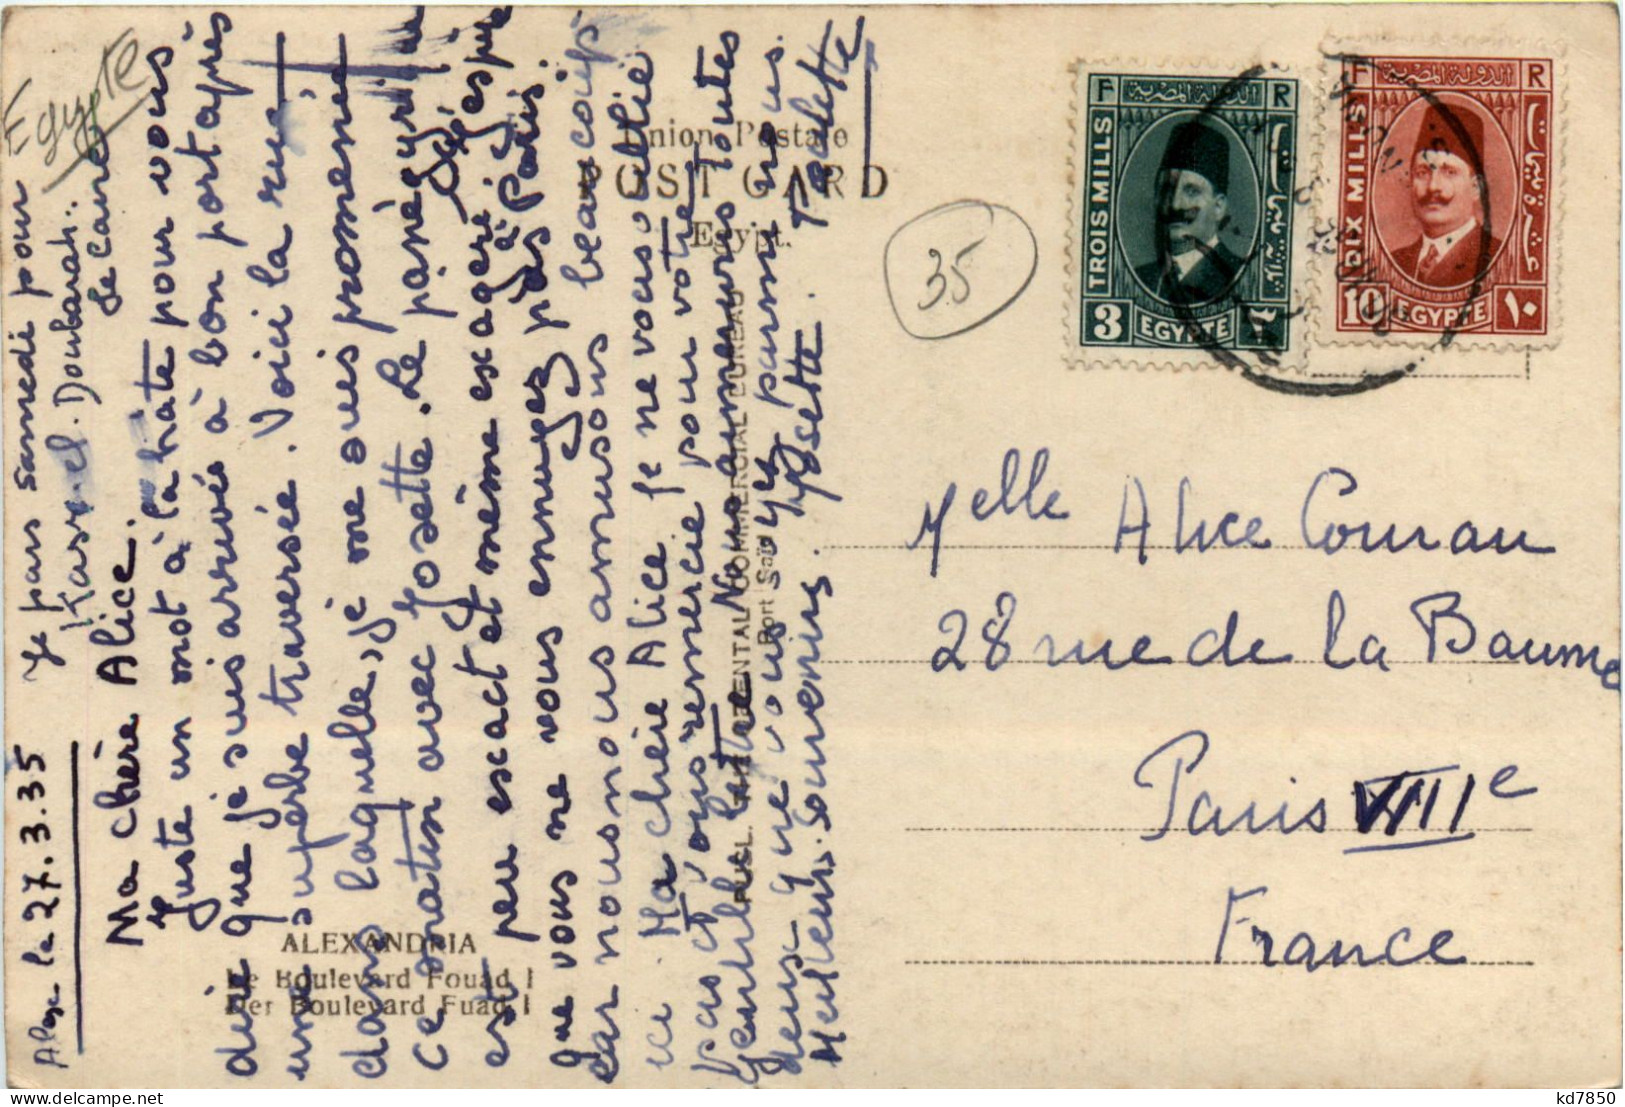 Egypte
Alex le 27.3.35
Je pars samedi pour
Kasr el Doubarah.
Le Caire
Ma chère Alice.
Juste un mot à la hâte pour vous
dire que je suis arrivée à bon port après
une superbe traversée. Voici la rue
dans laquelle je me suis promenée
ce matin avec Josette. Le
est peu exact et même exagéré j'espère
que vous ne vous ennuyez pas à Paris.
car nous nous amusons beaucoup
ici. Ma chère Alice je ne vous oublie
pas et vous remercie pour votre
gentille lettre. Nous aimerions toutes
deux que vous soyez parmi nous.
Meilleurs souvenirs. Josette. Paulette
Union Postale
POST CARD
Egypt.
35
PUBL. THE ORIENTAL COMMERCIAL BUREAU
Port Saïd
ALEXANDRIA
Le Boulevard Fouad I
Der Boulevard Fuad I
F الدولة المصرية R
TROIS MILLS
3 EGYPTE ٣
F الدولة المصرية R
DIX MILLS
عشرة مليمات
10 EGYPTE ١٠
Melle Alice Conrau
28 rue de la Baume
Paris VIIIe
France
kd7850